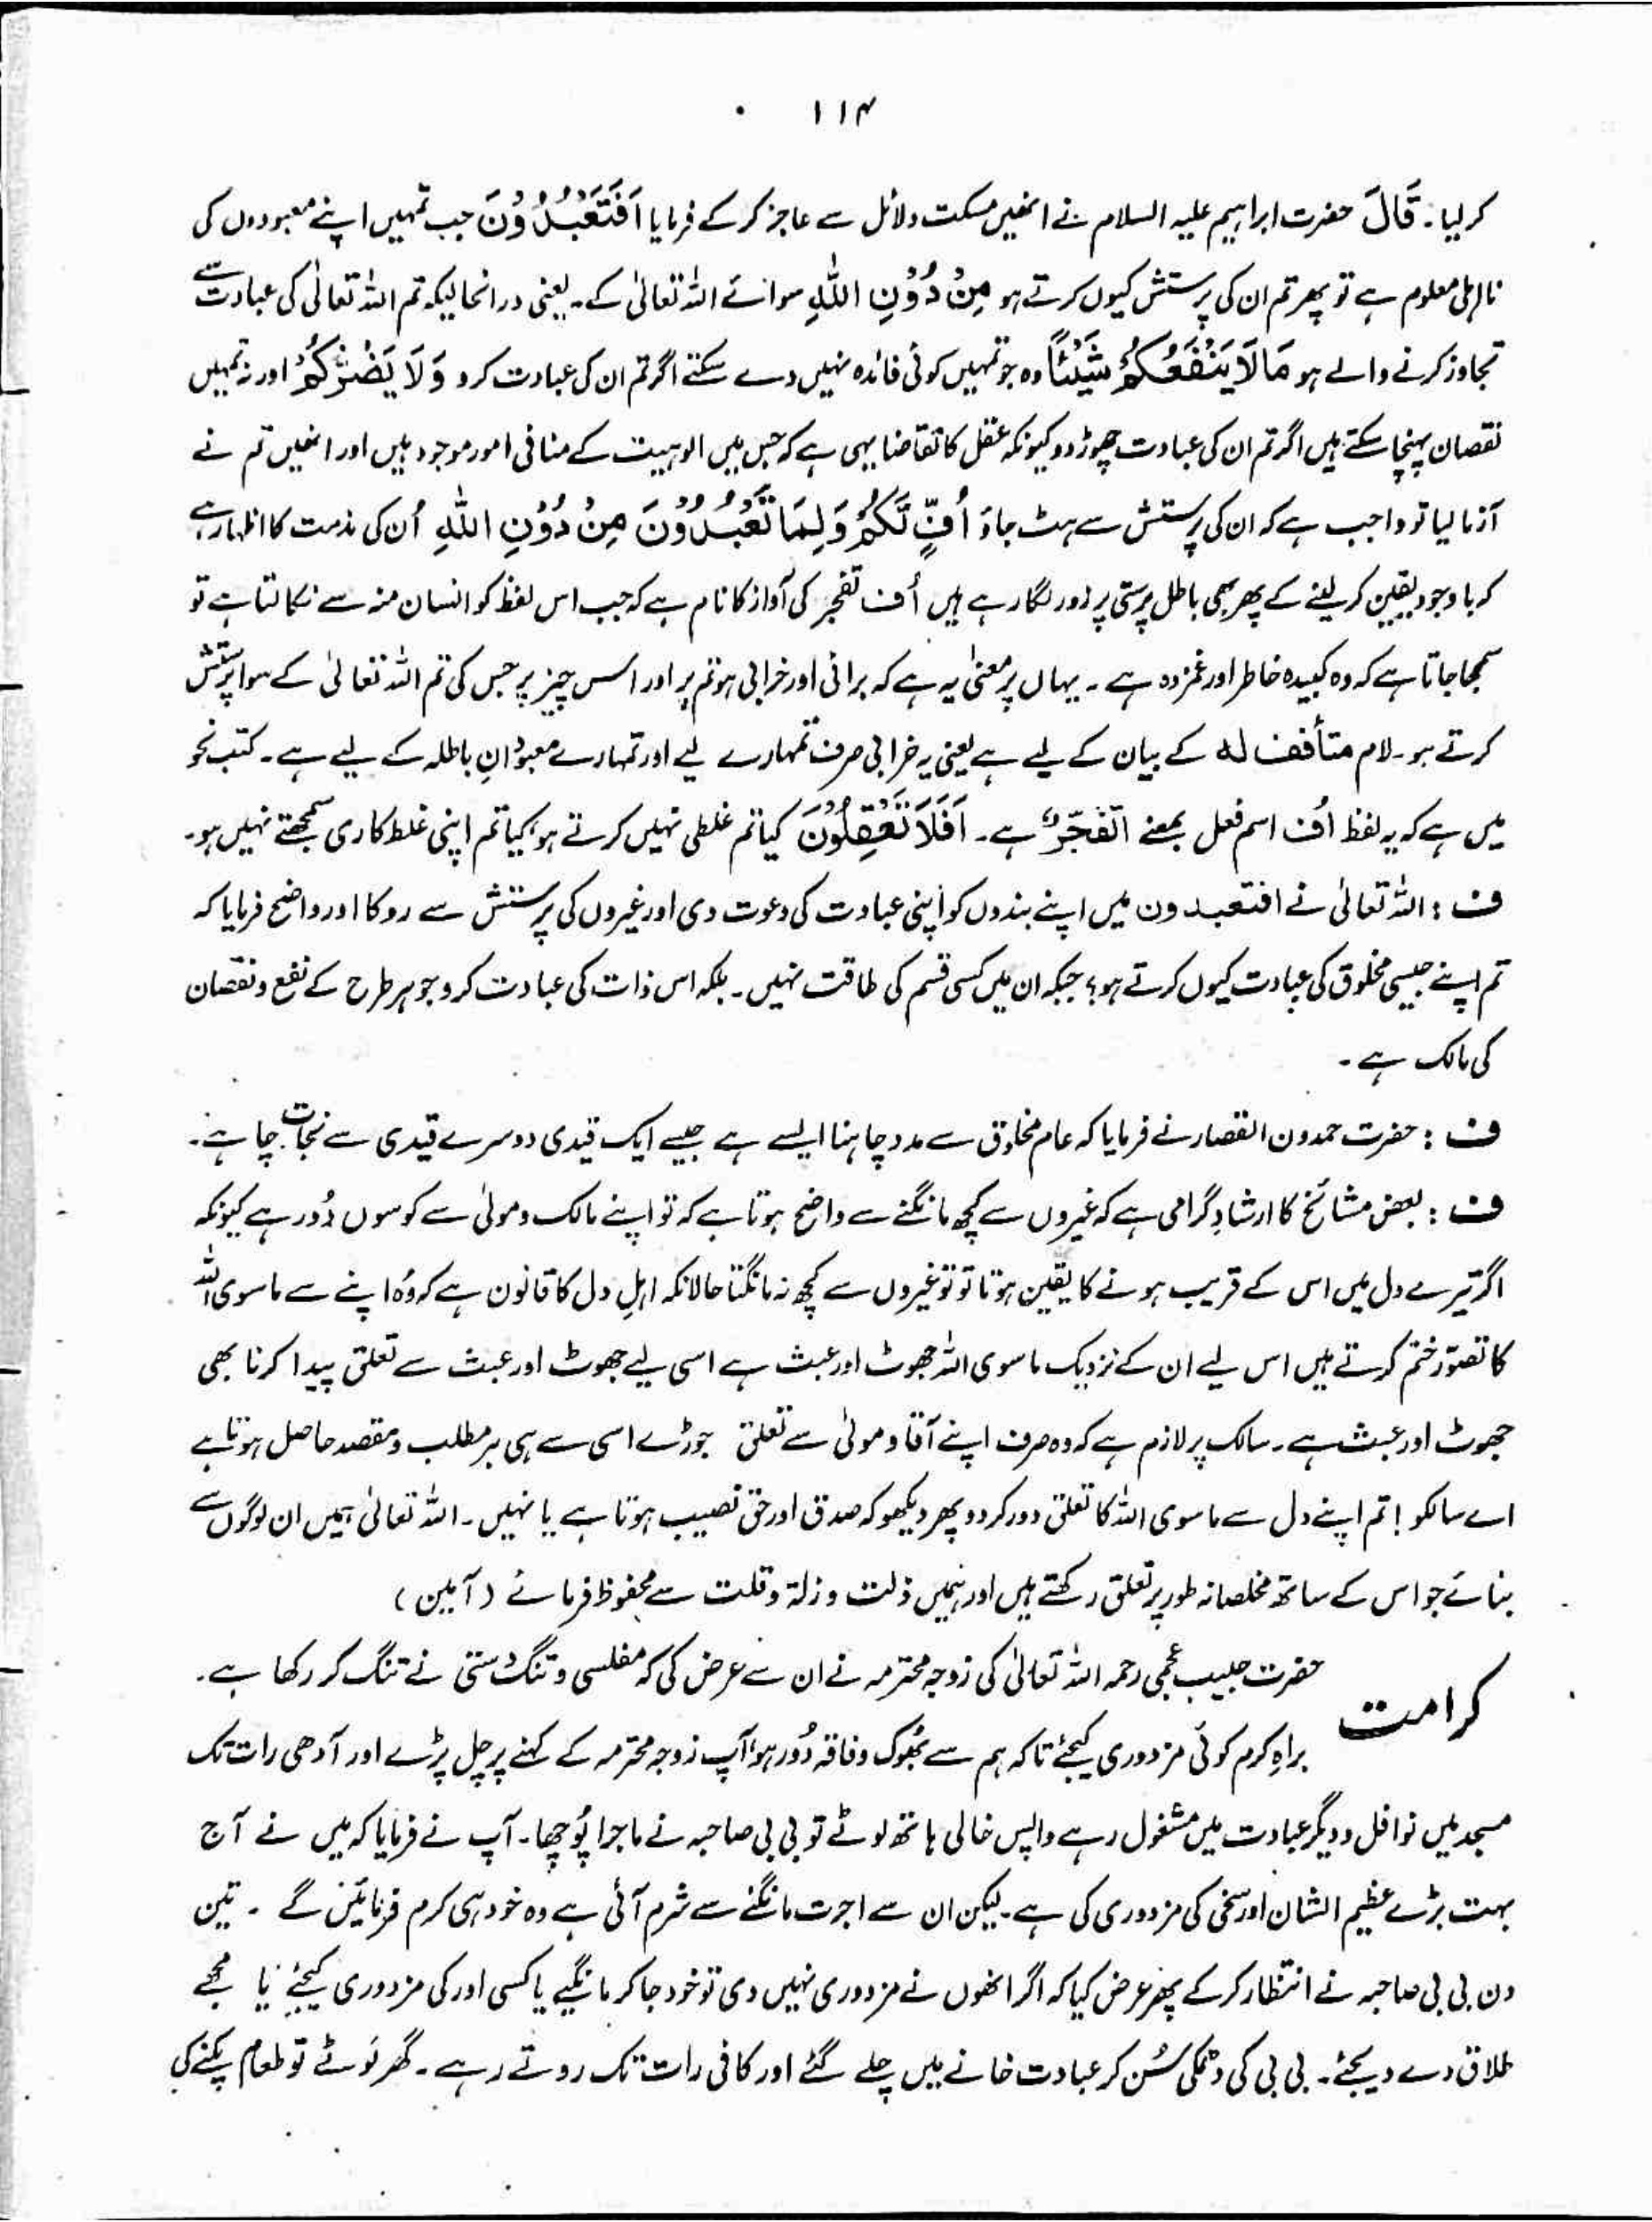 ۱۱۴
کر لیا۔ قَالَ حضرت ابراہیم علیہ السلام نے انھیں مسکت دلائل سے عاجز کر کے فرمایا اَفَتَعْبُدُوْنَ جب تمہیں اپنے معبودوں کی
نااہلی معلوم ہے تو پھر تم ان کی پرستش کیوں کرتے ہو مِنْ دُوْنِ اللّٰہِ سوائے اللہ تعالیٰ کے۔ یعنی درانحالیکہ تم اللہ تعالیٰ کی عبادت سے
تجاوز کرنے والے ہو مَا لَا یَنْفَعُکُمْ شَیْئًا وہ جو تمہیں کوئی فائدہ نہیں دے سکتے اگر تم ان کی عبادت کرو وَلَا یَضُرُّکُمْ اور نہ تمہیں
نقصان پہنچا سکتے ہیں اگر تم ان کی عبادت چھوڑ دو کیونکہ عقل کا تقاضا یہی ہے کہ جس میں الوہیت کے منافی امور موجود ہیں اور انھیں تم نے
آزما لیا تو واجب ہے کہ ان کی پرستش سے ہٹ جاؤ اُفٍّ لَّکُمْ وَلِمَا تَعْبُدُوْنَ مِنْ دُوْنِ اللّٰہِ اُن کی مذمت کا اظہار ہے
کہ باوجود یقین کر لینے کے پھر بھی باطل پرستی پر زور لگا رہے ہیں اُف تفجر کی آواز کا نام ہے کہ جب اس لفظ کو انسان منہ سے نکالتا ہے تو
سمجھا جاتا ہے کہ وہ کبیدہ خاطر اور غمزدہ ہے۔ یہاں پر معنیٰ یہ ہے کہ برائی اور خرابی ہو تم پر اور اس چیز پر جس کی تم اللہ تعالیٰ کے سوا پرستش
کرتے ہو۔ لام متأفف لہ کے بیان کے لیے ہے یعنی یہ خرابی صرف تمہارے لیے اور تمہارے معبودانِ باطلہ کے لیے ہے۔ کتب نحو
میں ہے کہ یہ لفظ اُف اسم فعل بمعنے اتفجّر ہے۔ اَفَلَا تَعْقِلُوْنَ کیا تم غلطی نہیں کرتے ہو، کیا تم اپنی غلط کاری سمجھتے نہیں ہو۔
ف : اللہ تعالیٰ نے افتعبدون میں اپنے بندوں کو اپنی عبادت کی دعوت دی اور غیروں کی پرستش سے روکا اور واضح فرمایا کہ
تم اپنے جیسی مخلوق کی عبادت کیوں کرتے ہو؟ جبکہ ان میں کسی قسم کی طاقت نہیں۔ بلکہ اس ذات کی عبادت کرو جو ہر طرح کے نفع و نقصان
کی مالک ہے۔
ف : حضرت حمدون القصار نے فرمایا کہ عام مخلوق سے مدد چاہنا ایسے ہے جیسے ایک قیدی دوسرے قیدی سے نجات چاہے۔
ف : بعض مشائخ کا ارشادِ گرامی ہے کہ غیروں سے کچھ مانگنے سے واضح ہوتا ہے کہ تو اپنے مالک و مولیٰ سے کوسوں دُور ہے کیونکہ
اگر تیرے دل میں اس کے قریب ہونے کا یقین ہوتا تو تو غیروں سے کچھ نہ مانگتا حالانکہ اہلِ دل کا قانون ہے کہ وُہ اپنے سے ماسوی اللہ
کا تصوّر ختم کرتے ہیں اس لیے ان کے نزدیک ماسوی اللہ جھوٹ اور عبث ہے اسی لیے جھوٹ اور عبث سے تعلق پیدا کرنا بھی
جھوٹ اور عبث ہے۔ سالک پر لازم ہے کہ وہ صرف اپنے آقا و مولیٰ سے تعلق جوڑے اسی سے ہی ہر مطلب و مقصد حاصل ہوتا ہے
اے سالکو! تم اپنے دل سے ماسوی اللہ کا تعلق دور کر دو پھر دیکھو کہ صدق اور حق نصیب ہوتا ہے یا نہیں۔ اللہ تعالیٰ ہمیں ان لوگوں سے
بنائے جو اس کے ساتھ مخلصانہ طور پر تعلق رکھتے ہیں اور ہمیں ذلت و زلۃ و قلت سے محفوظ فرمائے (آمین)
کرامت حضرت حبیب عجمی رحمہ اللہ تعالیٰ کی زوجہ محترمہ نے ان سے عرض کی کہ مفلسی و تنگ دستی نے تنگ کر رکھا ہے۔
براہِ کرم کوئی مزدوری کیجئے تاکہ ہم سے بھُوک و فاقہ دُور ہو، آپ زوجہ محترمہ کے کہنے پر چل پڑے اور آدھی رات تک
مسجد میں نوافل و دیگر عبادت میں مشغول رہے واپس خالی ہاتھ لوٹے تو بی بی صاحبہ نے ماجرا پُوچھا۔ آپ نے فرمایا کہ میں نے آج
بہت بڑے عظیم الشان اور سخی کی مزدوری کی ہے۔ لیکن ان سے اجرت مانگنے سے شرم آئی ہے وہ خود ہی کرم فرمائیں گے ۔ تین
دن بی بی صاحبہ نے انتظار کر کے پھر عرض کیا کہ اگر انھوں نے مزدوری نہیں دی تو خود جا کر مانگیے یا کسی اور کی مزدوری کیجئے یا مجھے
طلاق دے دیجئے۔ بی بی کی دھمکی سُن کر عبادت خانے میں چلے گئے اور کافی رات تک روتے رہے۔ گھر لوٹے تو طعام پکنے کی